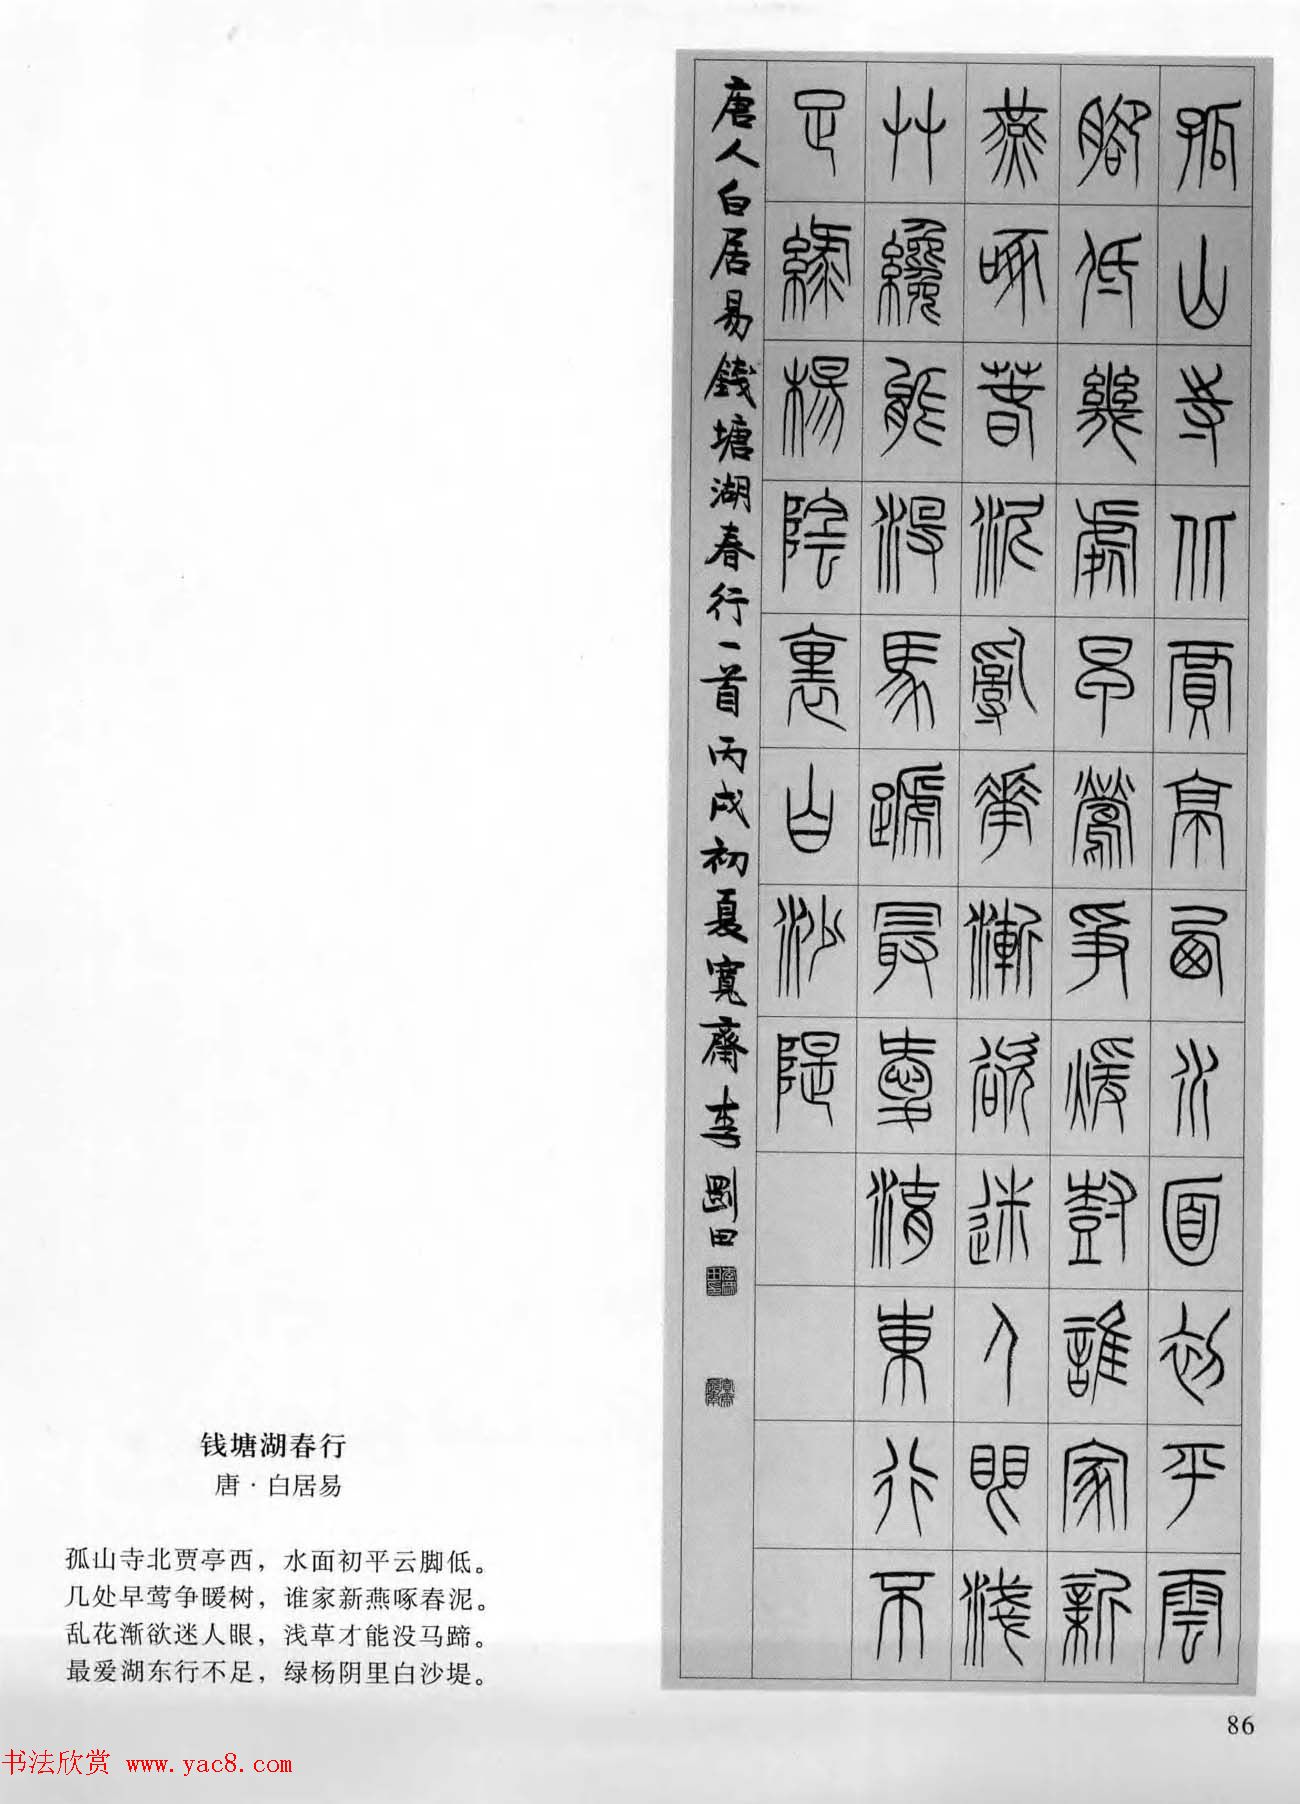 孤山寺北賈亭西水面初平雲
腳低幾處早鶯爭煖樹誰家新
燕啄春泥亂花漸欲迷人眼淺
艸纔能沒馬蹏最愛湖東行不
足綠楊陰裏白沙隄
唐人白居易錢塘湖春行一首丙戌初夏寬齋李剛田
钱塘湖春行
唐·白居易
孤山寺北贾亭西，水面初平云脚低。
几处早莺争暖树，谁家新燕啄春泥。
乱花渐欲迷人眼，浅草才能没马蹄。
最爱湖东行不足，绿杨阴里白沙堤。
86
书法欣赏 www.yac8.com